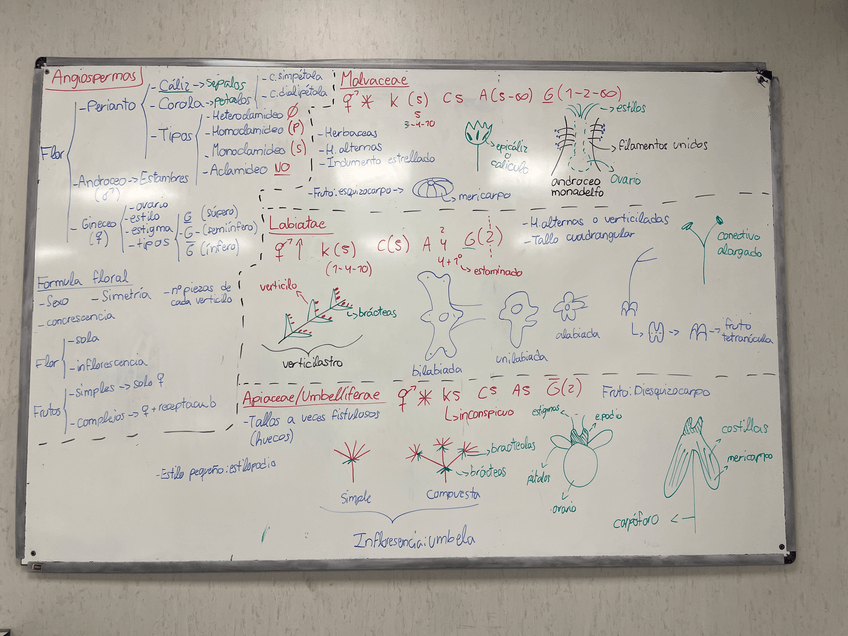 Angiospermas
Flor
- Perianto
- Cáliz → sépalos
- Corola → pétalos
- c. simpétala
- c. dialipétala
- Tipos
- Heteroclamideo Ø
- Homoclamideo (P)
Monoclamideo (S)
- Aclamideo NO
- Androceo → Estambres
(♂)
- Gineceo
(♀)
- ovario
- estilo
- estigma
- tipos
G (súpero)
G - (semiínfero)
G (ínfero)
Formula floral
- Sexo - Simetría - nº piezas de
cada verticilo
- concrescencia
Flor
- sola
- inflorescencia
Frutos
- simples → solo ♀
- complejos → ♀ + receptacub
Malvaceae
K (5) C5 A (5-∞) G (1-2-∞)
5
3-4-10
- Herbaceas
- H. alternas
- Indumento estrellado
- Fruto: esquizocarpo →
mericarpo
epicáliz o
calículo
estilos
filamentos unidos
Ovario
androceo
monadelfo
Labiatae
↑ K (5) C(5) A 4 G (2)
2
(1-4-10)
4+1º estaminado
- H. alternas o verticiladas
- Tallo cuadrangular
conectivo
alargado
verticilo
brácteas
verticilastro
bilabiada
unilabiada
alabiada
fruto
tetranúcula
Apiaceae/Umbelliferae
K5 C5 A5 G (2)
inconspicuo
Fruto: Diesquizocarpo
- Tallos a veces fistulosos
(huecos)
- Estilo pequeño: estilopodio
Simple
Compuesta
bracteolas
brácteas
Infloresencia: umbela
estigmas
epodio
pétalos
ovario
costillas
mericarpo
carpóforo